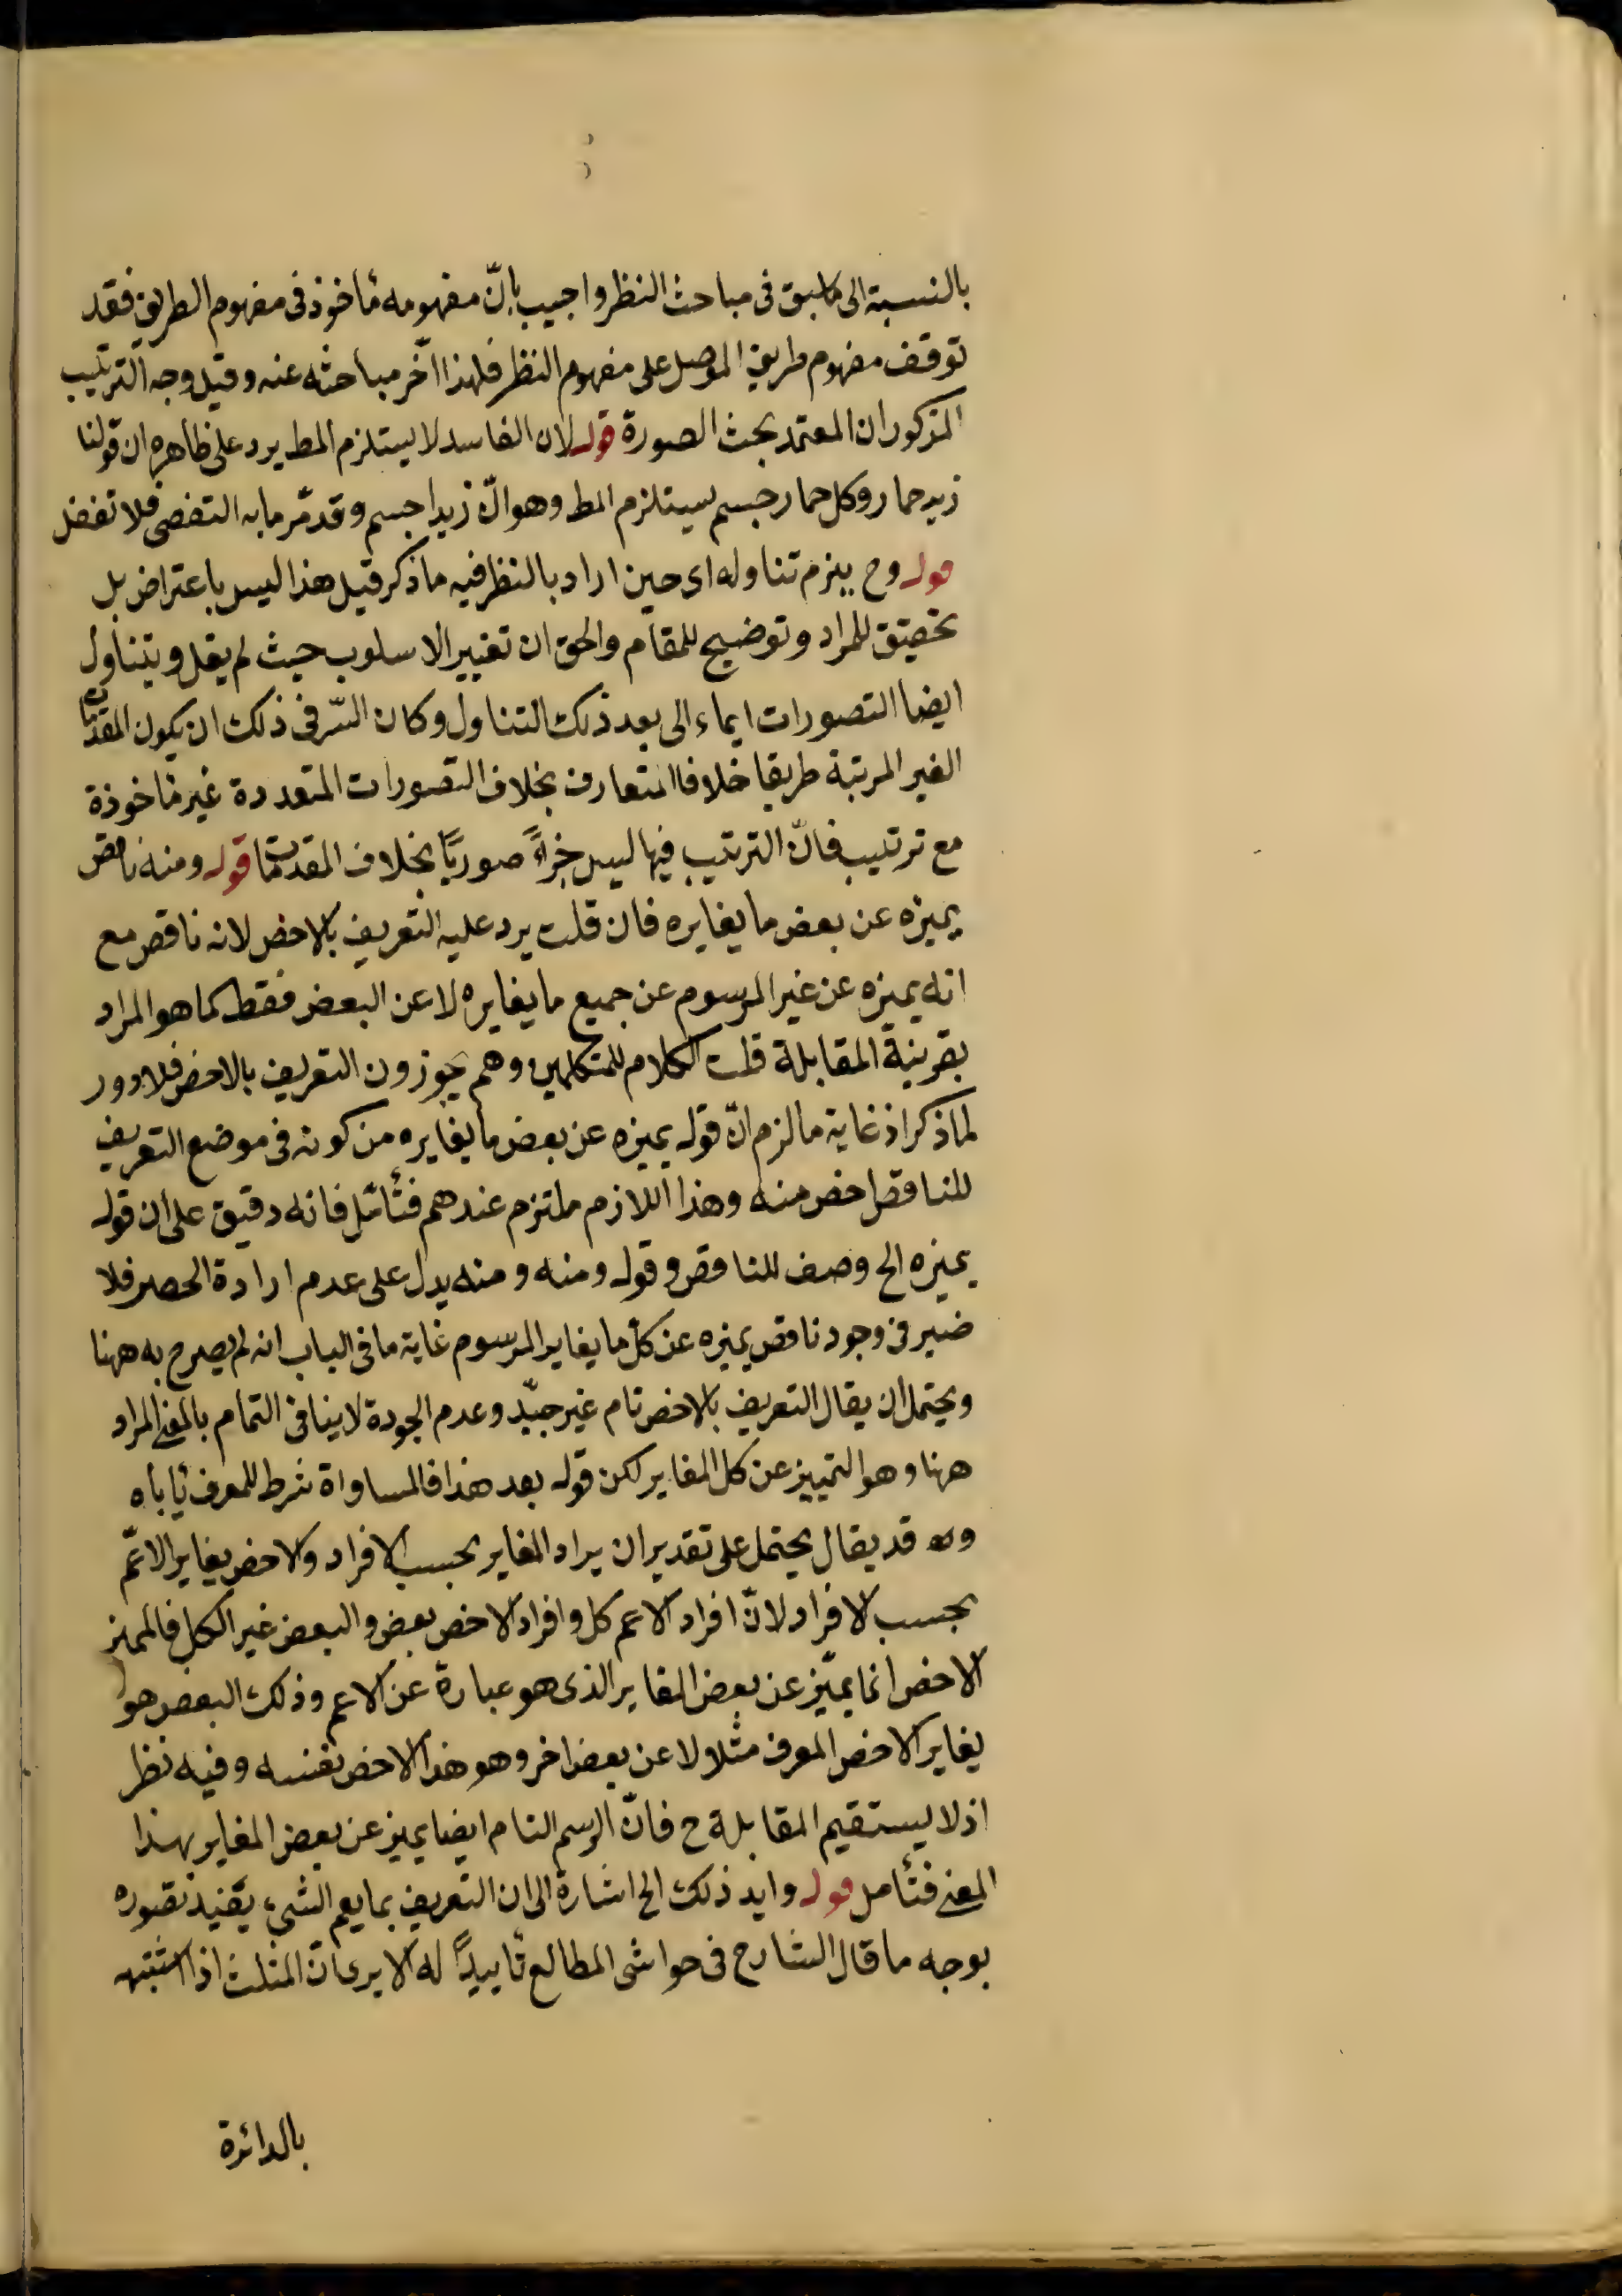 بالنسبة الى ما سبق فى مباحث النظر واجيب بانّ مفهومه مأخوذ فى مفهوم الطريق فقد
توقف مفهوم طريق الموصل على مفهوم النظر فلهذا اخّر مباحثه عنه وقيل وجه الترتيب
المذكور ان المعتمد بحث الصورة قوله لان الفاسد لا يستلزم المط يرد على ظاهره ان قولنا
زيد حمار وكل حمار جسم يستلزم المط وهو انّ زيدا جسم وقد مّر ما به التفصى فلا تغفل
قوله وح يلزم تناوله اى حين اراد بالنظر فيه ما ذكر قيل هذا ليس باعتراض بل
تحقيق للمراد وتوضيح للمقام والحق ان تغيير الاسلوب حيث لم يقل ويتناول
ايضا التصورات ايماء الى بعد ذلك التناول وكان السّر فى ذلك ان يكون المقدمات
الغير المرتبة طريقا خلاف المتعارف بخلاف التصورات المتعددة غير مأخوذة
مع ترتيب فانّ الترتيب فيها ليس جزءً صوريًا بخلاف المقدمات قوله ومنه ناقص
يميزه عن بعض ما يغايره فان قلت يرد عليه التعريف بالاخص لانه ناقص مع
انه يميزه عن غير المرسوم عن جميع ما يغايره لا عن البعض فقط كما هو المراد
بقرينة المقابلة قلت الكلام للمتكلمين وهم يجوزون التعريف بالاخص فلا دور
لما ذكر اذ غاية ما لزم انّ قوله يميزه عن بعض ما يغايره من كونه فى موضع التعريف
للناقص اخص منه وهذا اللازم ملتزم عندهم فتأمّل فانه دقيق على ان قوله
يميزه الخ وصف للناقص وقوله ومنه ومنه يدل على عدم ارادة الحصر فلا
ضير فى وجود ناقص يميزه عن كل ما يغاير المرسوم غاية ما فى الباب انه لم يصرح به ههنا
ويحتمل ان يقال التعريف بالاخص تام غير جيّد وعدم الجودة لا ينافى التمام بالمعنى المراد
ههنا وهو التمييز عن كل المغاير لكن قوله بعد هذا فالمساواة شرط للمعرف يأباه
وقد يقال يحتمل على تقدير ان يراد المغاير بحسب الافراد والاخص يغاير الاعّم
بحسب الافراد لانّ افراد الاعم كل وافراد الاخص بعض والبعض غير الكل فالمميز
الاخص انما يميّز عن بعض المغاير الذى هو عبارة عن الاعم وذلك البعض هو
يغاير الاخص المعرف مثلا لا عن بعض اخر وهو هذا الاخص نفسه وفيه نظر
اذ لا يستقيم المقابلة ح فانّ الرسم التام ايضا يميز عن بعض المغاير بهذا
المعنى فتأمل قوله وايد ذلك الخ اشارة الى ان التعريف بما يعم الشىء يفيد تصوره
بوجه ما قال الشارح فى حواشى المطالع تأييدًا له الا يرى انّ المثلث اذا اشتبه
بالدائرة